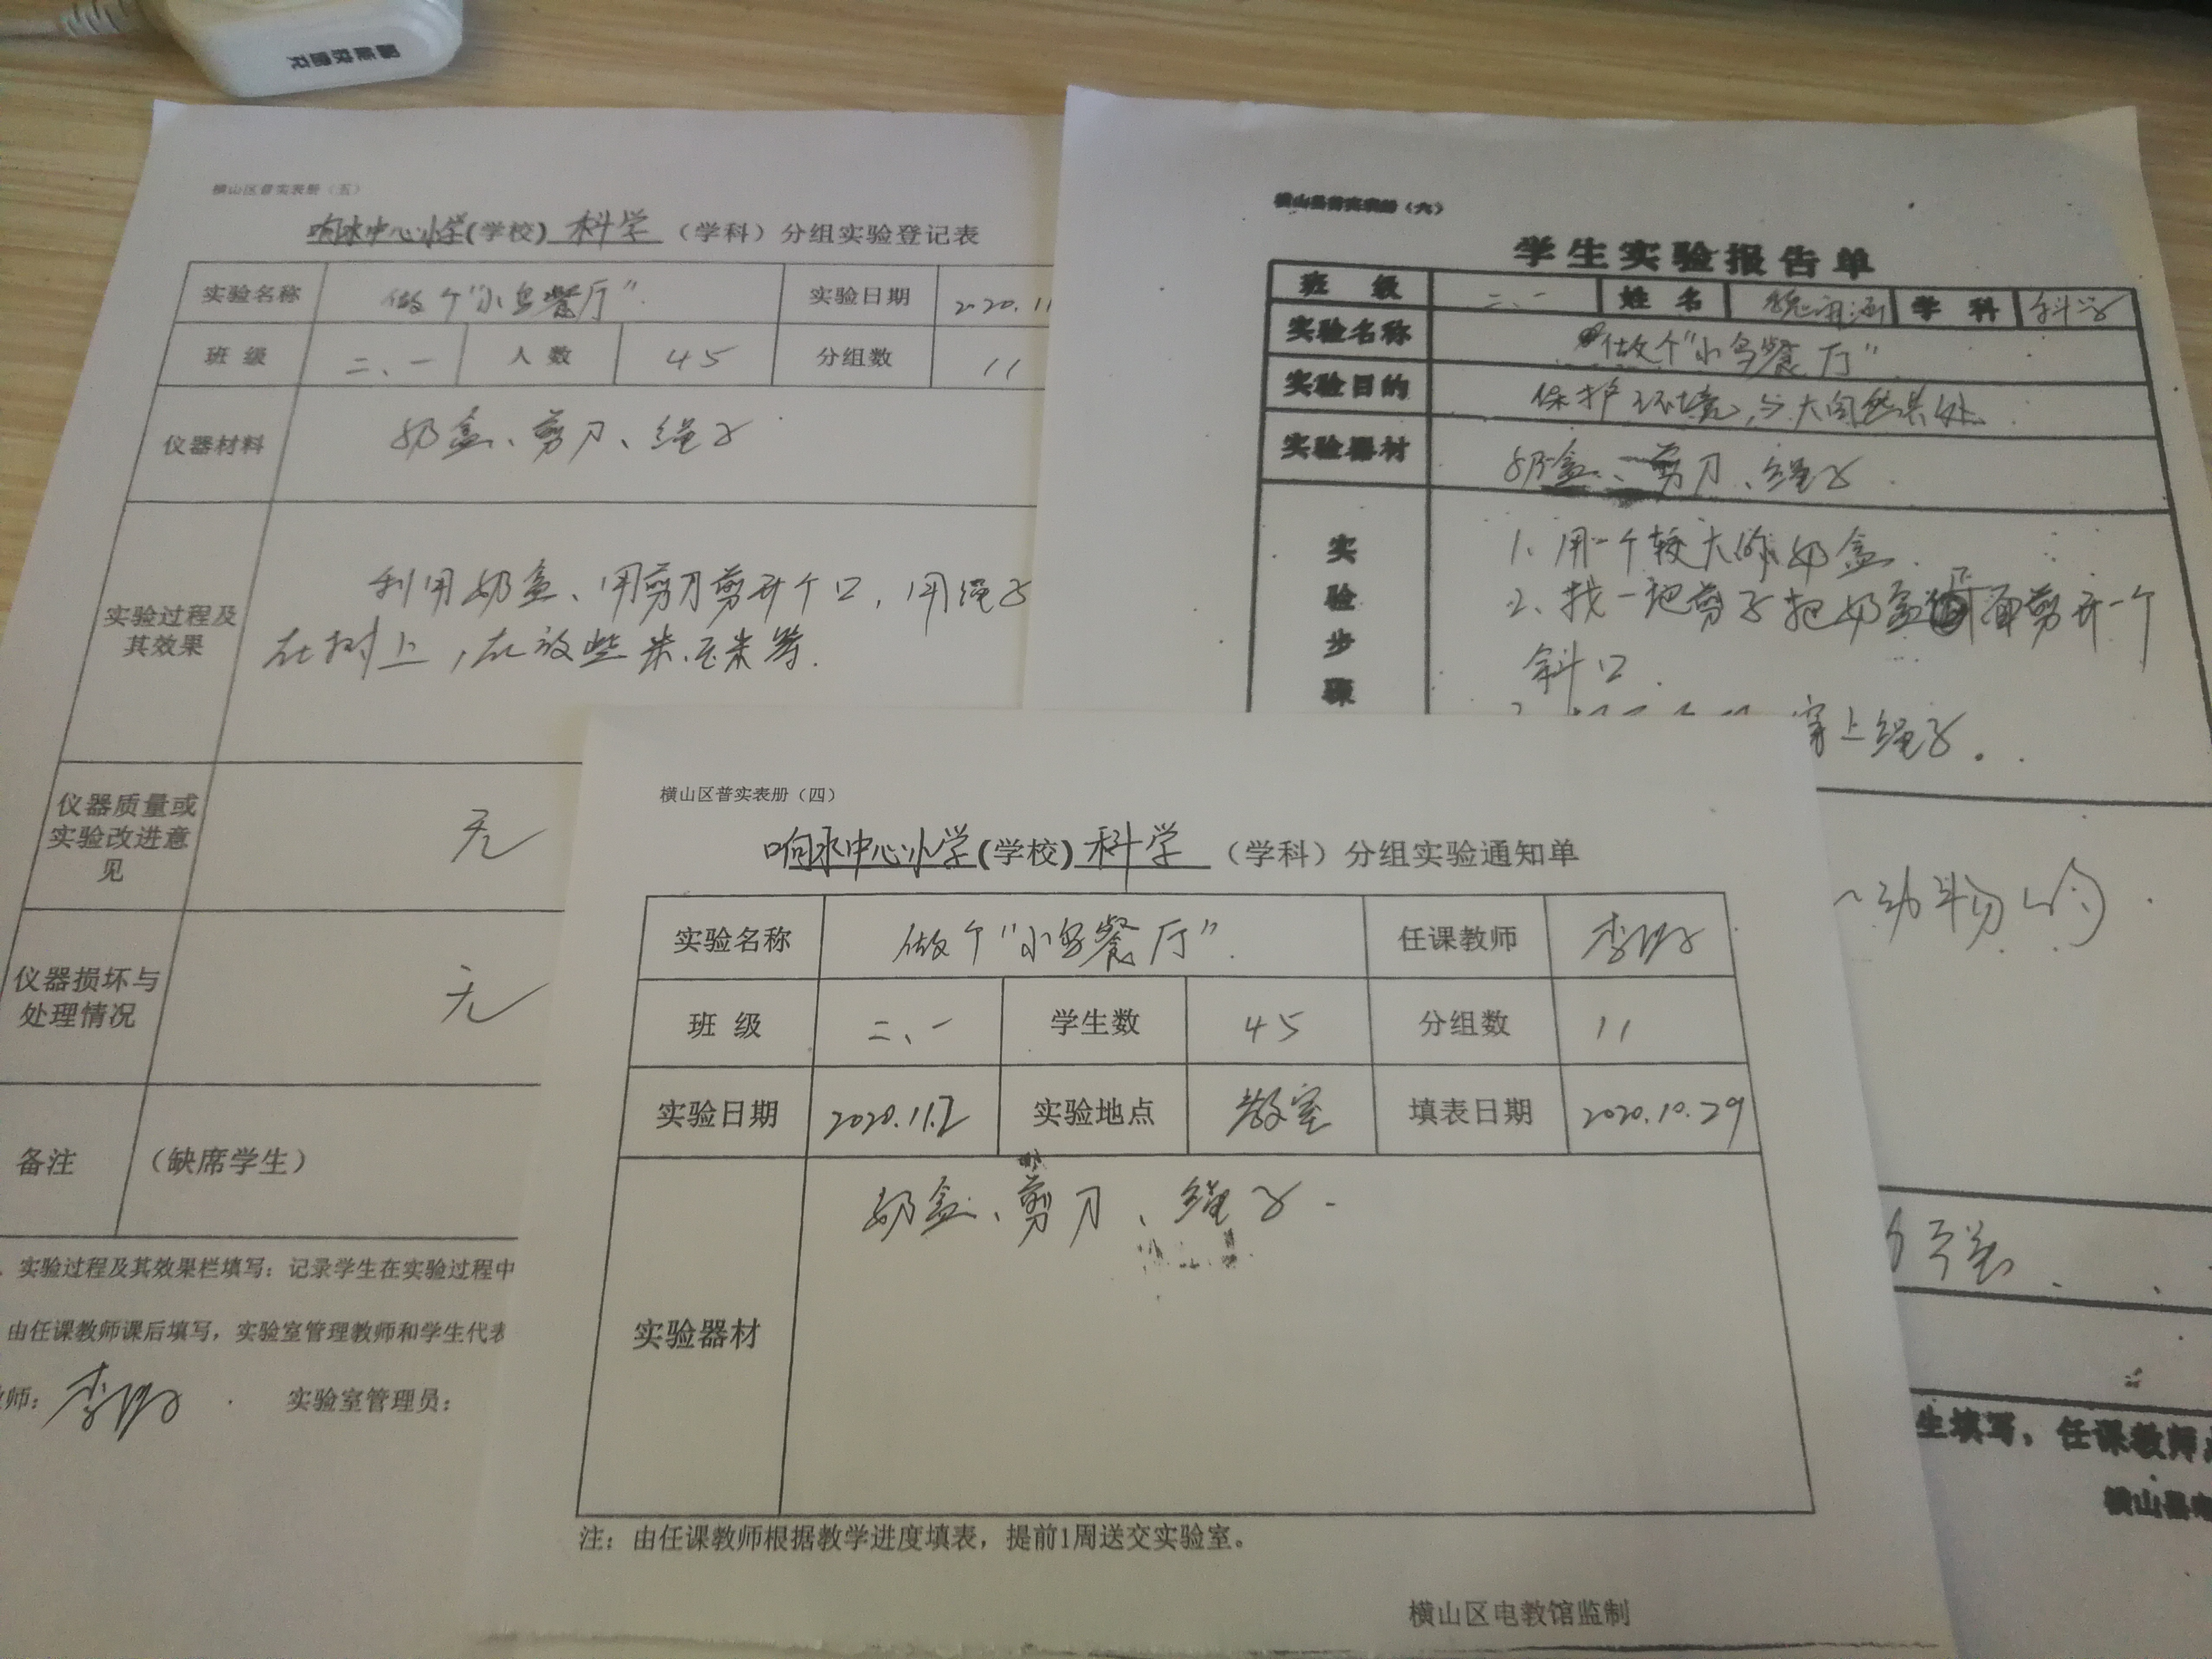 横山区普实表册（五）
响水中心小学(学校) 科学 （学科）分组实验登记表
实验名称 做个"小鸟餐厅". 实验日期 2020.11
班级 二、一 人数 45 分组数 11
仪器材料 奶盒、剪刀、绳子
实验过程及
其效果
利用奶盒、用剪刀剪开个口，用绳子
在树上，在放些米、玉米等.
仪器质量或
实验改进意
见
无
仪器损坏与
处理情况
无
备注 （缺席学生）
实验过程及其效果栏填写：记录学生在实验过程中
由任课教师课后填写，实验室管理教师和学生代表
师： 李 实验室管理员：
横山县普实表册（六）
学生实验报告单
班级 二、一 姓名 学科 科学
实验名称 做个"小鸟餐厅"
实验目的 保护环境，与大自然共处.
实验器材 奶盒、剪刀、绳子
实验步骤
1、用一个较大的奶盒.
2、找一把剪子把奶盒 面剪开一个
斜口.
穿上绳子.
动物的.
生填写，任课教师
横山县电
横山区普实表册（四）
响水中心小学(学校) 科学 （学科）分组实验通知单
实验名称 做个"小鸟餐厅". 任课教师 李
班级 二、一 学生数 45 分组数 11
实验日期 2020.11.2 实验地点 教室 填表日期 2020.10.29
实验器材 奶盒、剪刀、绳子.
注：由任课教师根据教学进度填表，提前1周送交实验室。
横山区电教馆监制